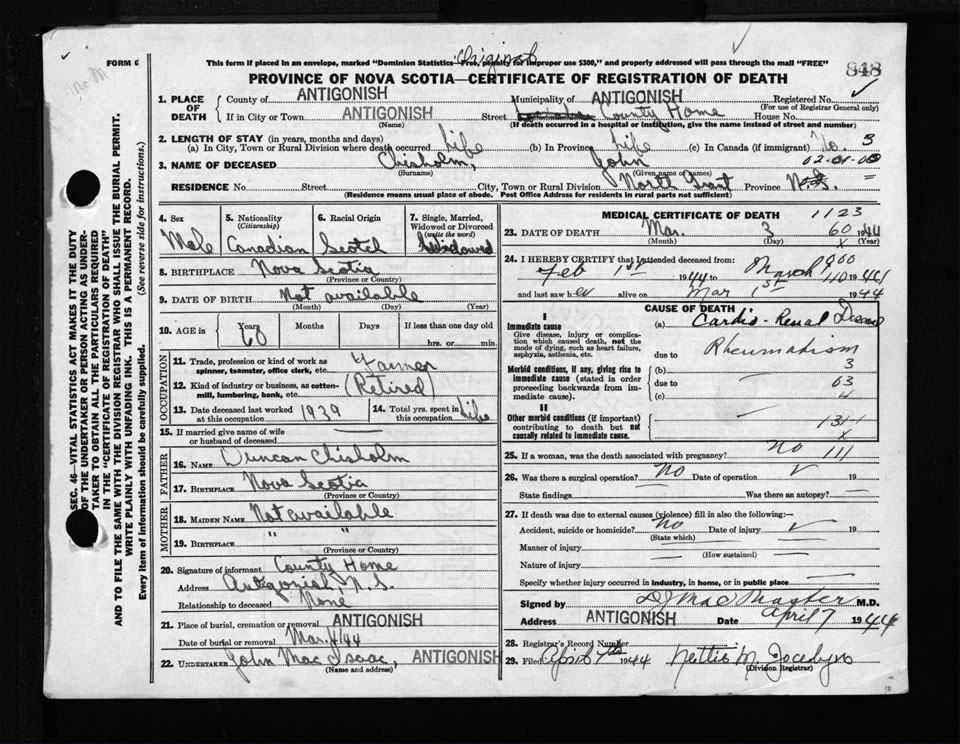 Original
FORM 6 This form if placed in an envelope, marked "Dominion Statistics—Free, penalty for improper use $300," and properly addressed will pass through the mail "FREE"
PROVINCE OF NOVA SCOTIA—CERTIFICATE OF REGISTRATION OF DEATH 848
1. PLACE OF DEATH County of ANTIGONISH Municipality of ANTIGONISH Registered No.
(For use of Registrar General only)
If in City or Town ANTIGONISH Street County Home House No.
(Name) (If death occurred in a hospital or institution, give the name instead of street and number)
2. LENGTH OF STAY (in years, months and days)
(a) In City, Town or Rural Division where death occurred Life (b) In Province Life (c) In Canada (if immigrant) No. 3
3. NAME OF DECEASED Chisholm, John
(Surname) (Given name or names)
RESIDENCE No. Street City, Town or Rural Division North Grant Province N.S.
(Residence means usual place of abode. Post Office Address for residents in rural parts not sufficient)
SEC. 46—VITAL STATISTICS ACT MAKES IT THE DUTY
OF THE UNDERTAKER OR PERSON ACTING AS UNDER-
TAKER TO OBTAIN ALL THE PARTICULARS REQUIRED
IN THE "CERTIFICATE OF REGISTRATION OF DEATH"
AND TO FILE THE SAME WITH THE DIVISION REGISTRAR WHO SHALL ISSUE THE BURIAL PERMIT.
WRITE PLAINLY WITH UNFADING INK. THIS IS A PERMANENT RECORD.
Every item of information should be carefully supplied. (See reverse side for instructions.)
4. Sex 5. Nationality (Citizenship) 6. Racial Origin 7. Single, Married, Widowed or Divorced (write the word)
Male Canadian Scotch Widowed
8. BIRTHPLACE Nova Scotia
(Province or Country)
9. DATE OF BIRTH Not available
(Month) (Day) (Year)
10. AGE in Years Months Days If less than one day old
60 hrs. or min.
OCCUPATION
11. Trade, profession or kind of work as
spinner, teamster, office clerk, etc. Farmer
12. Kind of industry or business, as cotton-
mill, lumbering, bank, etc. (Retired)
13. Date deceased last worked at this occupation 1939 14. Total yrs. spent in this occupation life
15. If married give name of wife
or husband of deceased
FATHER
16. NAME Duncan Chisholm
17. BIRTHPLACE Nova Scotia
(Province or Country)
MOTHER
18. MAIDEN NAME Not available
19. BIRTHPLACE " "
(Province or Country)
20. Signature of informant County Home
Address Antigonish, N.S.
Relationship to deceased None
21. Place of burial, cremation or removal ANTIGONISH
Date of burial or removal Mar. 4/44
22. UNDERTAKER John MacIsaac, ANTIGONISH
(Name and address)
MEDICAL CERTIFICATE OF DEATH 1123
23. DATE OF DEATH Mar. 3 60 1944
(Month) (Day) x (Year)
24. I HEREBY CERTIFY that I attended deceased from: 900
Feb 1st 1944 to March
and last saw her alive on Mar 1st 1944
CAUSE OF DEATH
I
Immediate cause (a) Cardio-Renal Disease
Give disease, injury or complica-
tion which caused death, not the
mode of dying, such as heart failure,
asphyxia, asthenia, etc.
due to Rheumatism
Morbid conditions, if any, giving rise to
immediate cause (stated in order
proceeding backwards from im-
mediate cause).
(b) 3
due to 03
(c) 4
II
Other morbid conditions (if important)
contributing to death but not
causally related to immediate cause.
131-1
x
25. If a woman, was the death associated with pregnancy? No 111
26. Was there a surgical operation? No Date of operation 19
State findings Was there an autopsy?
27. If death was due to external causes (violence) fill in also the following:—
Accident, suicide or homicide? No Date of injury 19
(State which)
Manner of injury
(How sustained)
Nature of injury
Specify whether injury occurred in industry, in home, or in public place
Signed by MacMaster M.D.
Address ANTIGONISH Date April 7 1944
28. Registrar's Record Number
29. Filed April 7th 1944 Nettie M. Jocelyn
(Division Registrar)